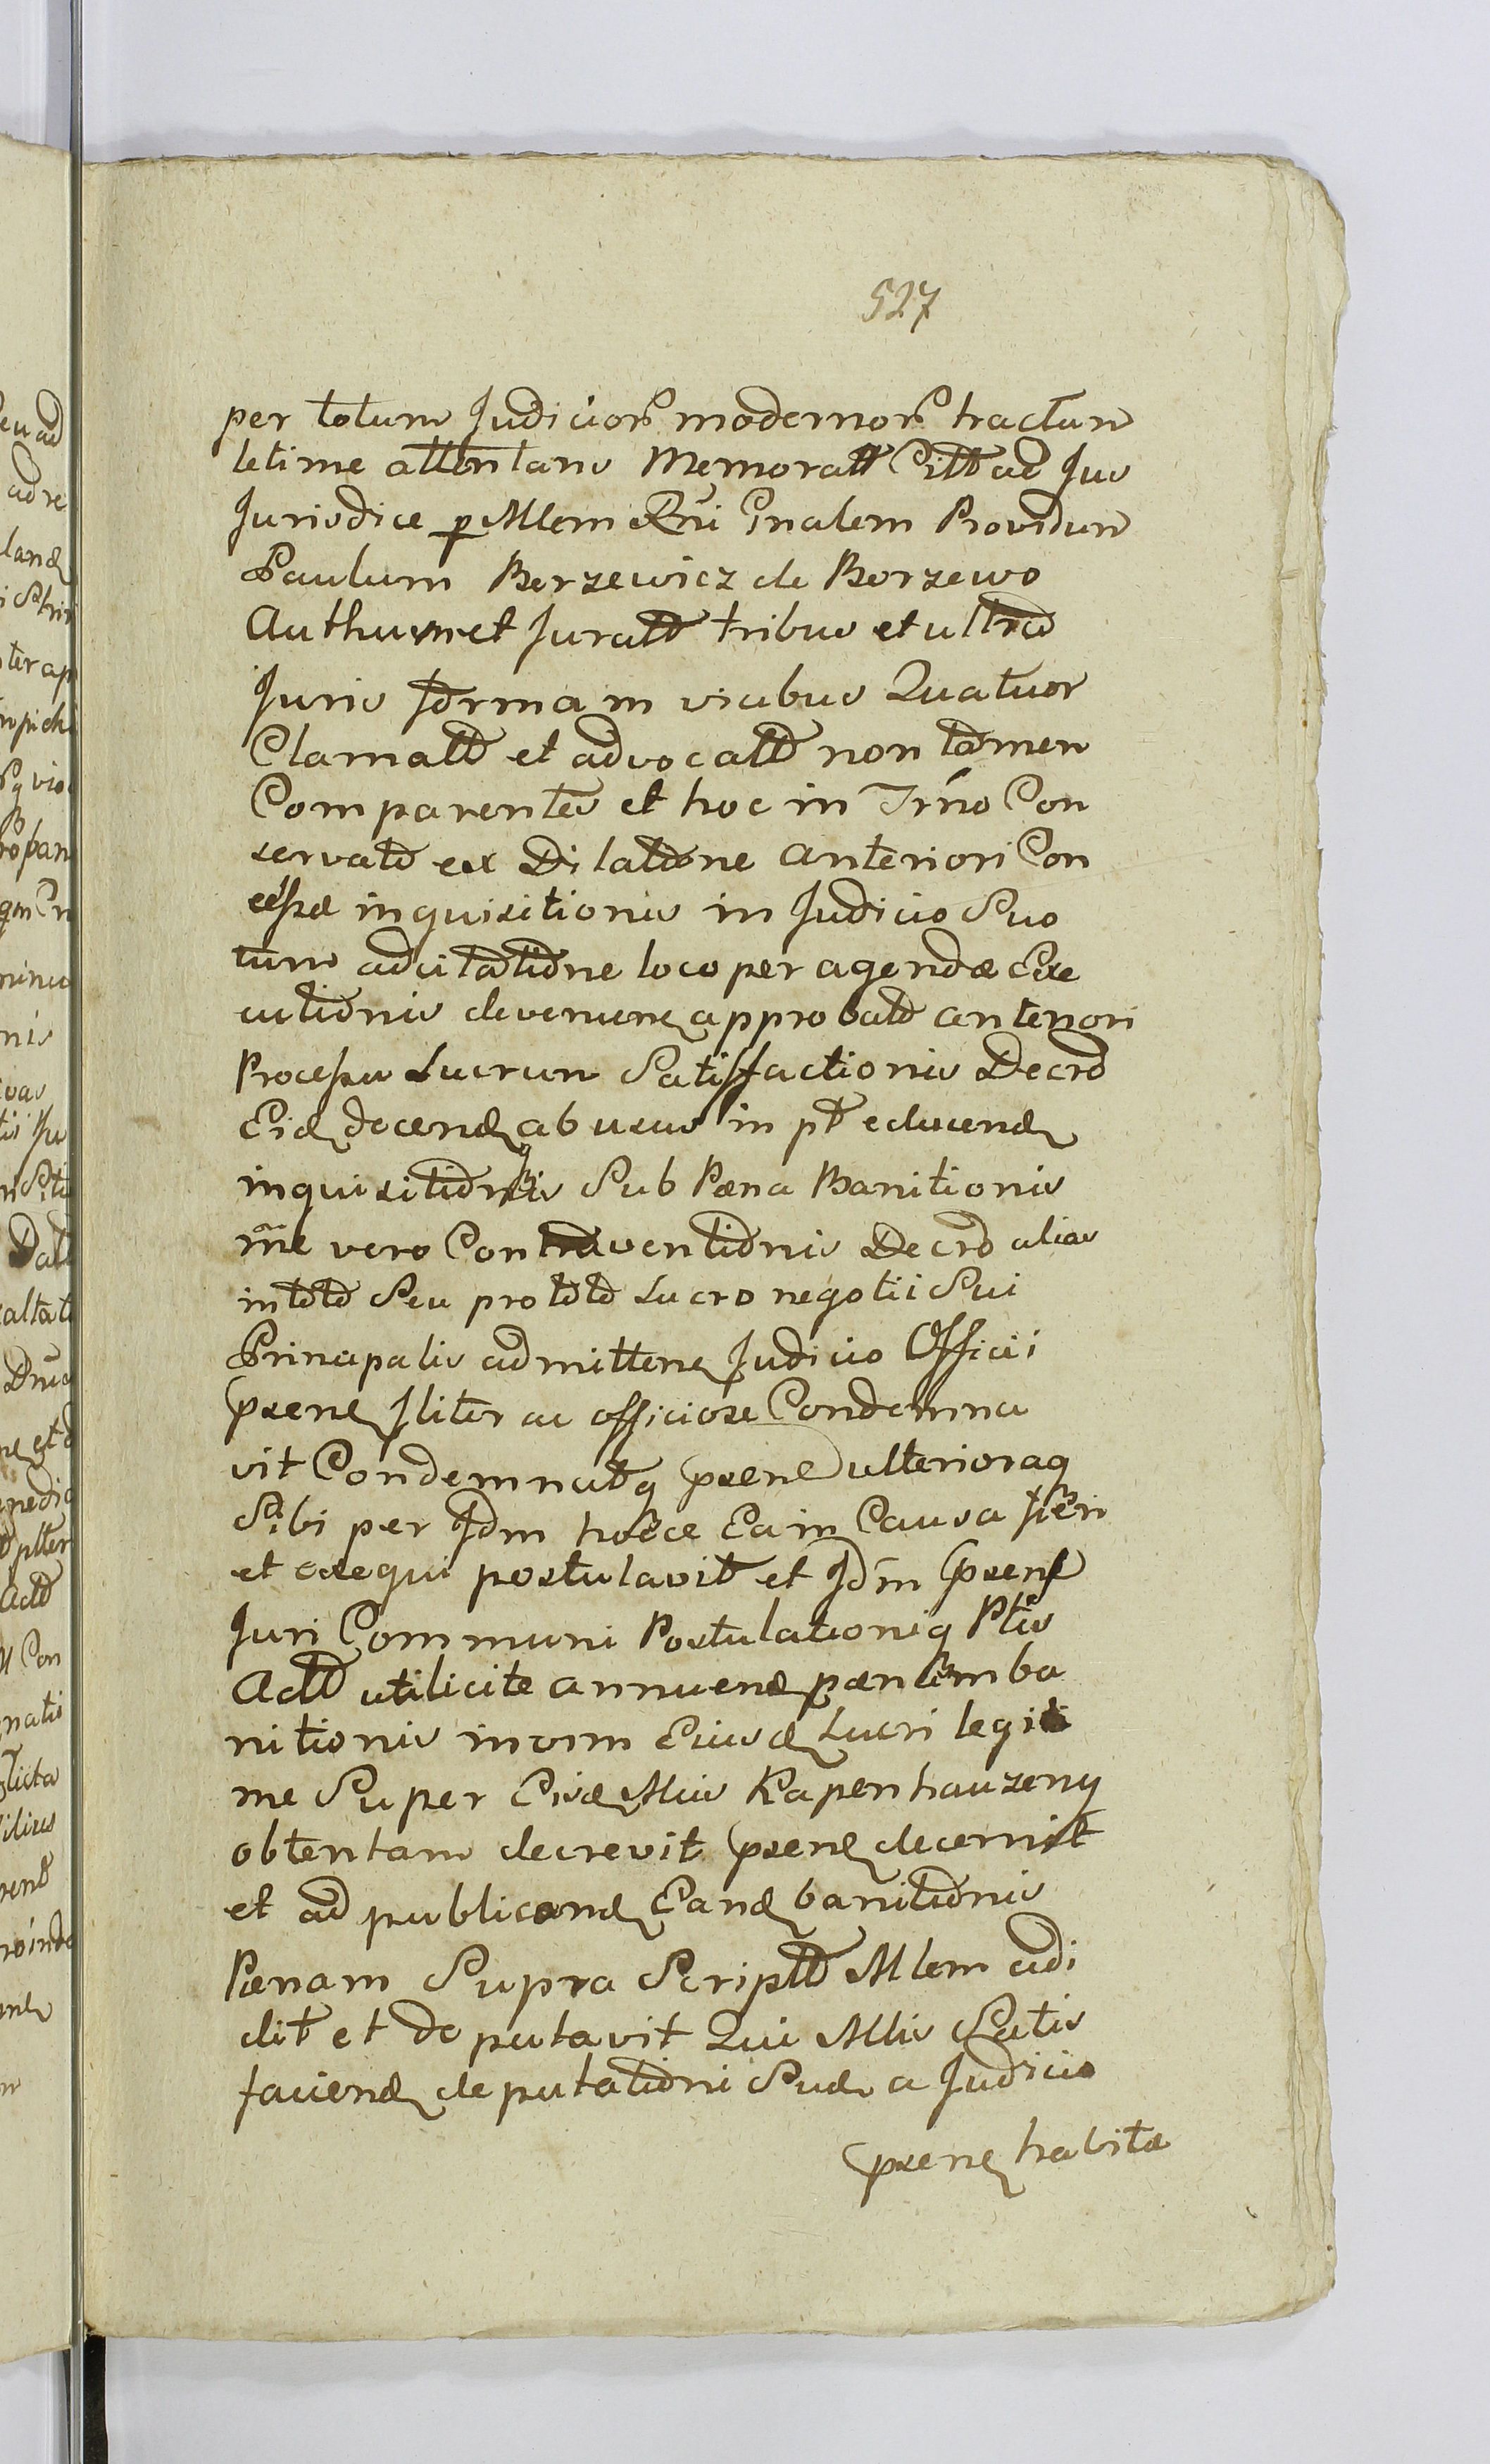 527
per totum Judicior modernor tractum
letime attentans Memoratt Citt ad Jus
Jurisdice p Mlem Rni Gnalem Providum
Paulum Berzewicz de Borzewo
Authum et Juratt tribus et ultra
Juris formam vicibus Quatuor
Clamatt et advocatt non tamen
Comparentes et hoc in Trno Con
servato ex Dilatione anteriori Con
cessæ inquisitionis in Judicio Suo
tum ad citatione loco peragendæ Exe
cutionis deveniens approbato anteriori
Processu Lucrum Satisfactionis Decro
Eid docend abusus in pt educend
inquisitionis Sub Pæna Banitionis
rne vero Contraventionis Decro alias
in toto Seu pro toto Lucro negotii Sui
Principalis admittens Judicio Officii
psene sliter ac officiose Condemna
vit Condemnatq psene ulterioraq
Sibi per Idm hocce Ea in Causa fieri
et exequi postulavit et Idm psens
Juri Communi Postulationiq Ptis
Actt utilicite annuens pænlem ba
nitionis in vim Eiusd Lucri legiti
me Super Eisd Mlis Kapenhauzeny
obtentam decrevit psene decernit
et ad publicand Eand banitionis
Pænam Supra Scriptt Mlem adi
dit et deputavit Qui Mlis Satis
faciend deputationi Suæ a Judicio
psene habitæ